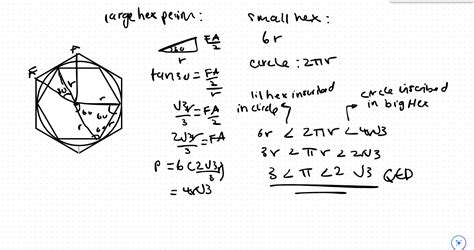 large hex perim:
small hex:
6r
circle: 2πr
F
A
r
30
r
60
r
60
r
30
FA/2
r
tan30 = (FA/2)/r
√3/3 = FA/2
2√3r/3 = FA
P = 6(2√3r/3)
= 4r√3
lil hex inscribed in circle
circle inscribed in big hex
6r < 2πr < 4r√3
3r < πr < 2r√3
3 < π < 2√3 QED